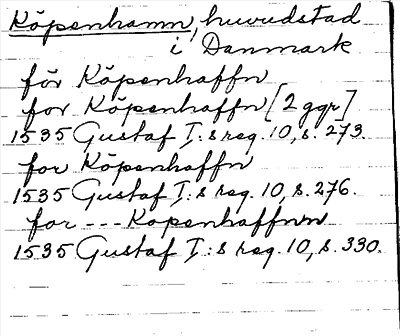 Köpenhamn, huvudstad
i Danmark
för Köpenhaffn
for Köpenhaffn [2 ggr]
1535 Gustaf I:s reg. 10, s. 273.
for Köpenhaffn
1535 Gustaf I:s reg. 10, s. 276.
for --- Kopenhaffnn
1535 Gustaf I:s reg. 10, s. 330.